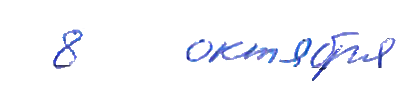 8 октября